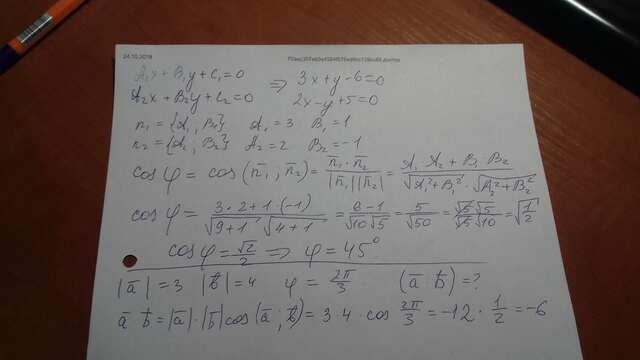 24.10.2019
A₁x + B₁y + C₁ = 0 ⇒ 3x + y - 6 = 0
A₂x + B₂y + C₂ = 0 2x - y + 5 = 0
n₁ = {A₁; B₁} A₁ = 3 B₁ = 1
n₂ = {A₂; B₂} A₂ = 2 B₂ = -1
cos φ = cos (n̄₁; n̄₂) = (n̄₁ · n̄₂)/(|n̄₁||n̄₂|) = (A₁ A₂ + B₁ B₂)/(√(A₁² + B₁²) · √(A₂² + B₂²))
cos φ = (3·2 + 1·(-1))/(√(9+1) √(4+1)) = (6 - 1)/(√10 √5) = 5/√50 = (√5 √5)/(√5 √10) = √(1/2)
cos φ = √2/2 ⇒ φ = 45°
|ā| = 3 |b̄| = 4 φ = 2π/3 (ā · b̄) = ?
ā · b̄ = |ā| · |b̄| cos (ā; b̄) = 3 · 4 · cos 2π/3 = -12 · 1/2 = -6